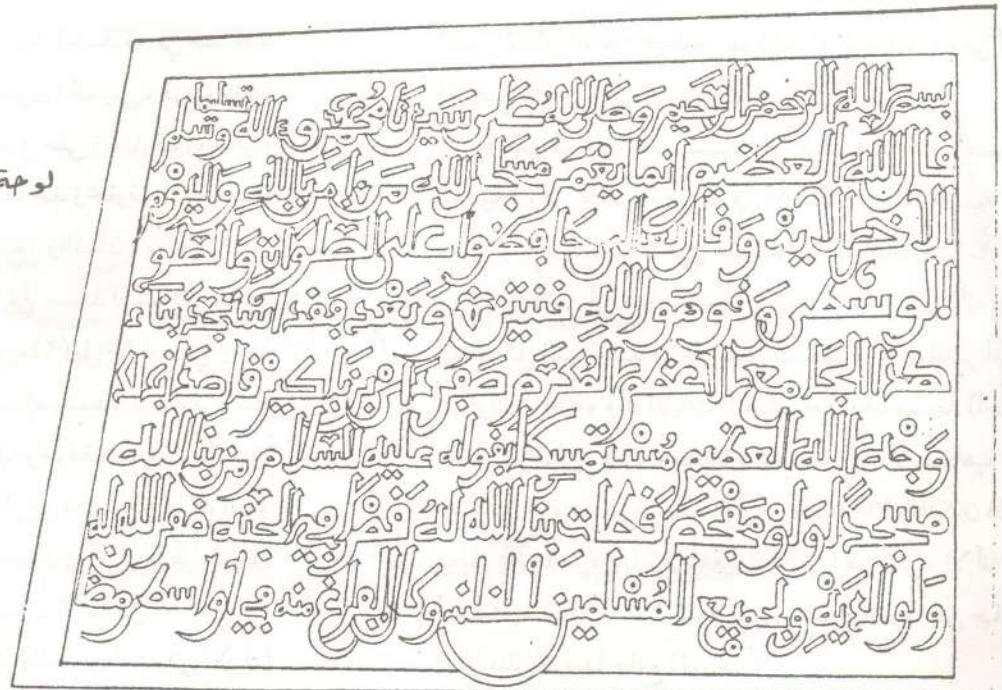 لوحة
بسم الله الرحمن الرحيم وصلى الله على سيدنا محمد وءاله وسلم تسليما
قال الله العظيم انما يعمر مسجد الله من ءامن بالله واليوم
الاخر الاية وقال تعالى حافظوا على الصلوات والصلوة
الوسطى وقوموا لله قنتين وبعد فقد بناء
هذا الجامع المكرم صفر ابن
وجه الله العظيم متمسكا بقوله عليه السلام من بنا لله
مسجدا ولو مفحص قطات بنا الله له قصرا في الجنة غفر الله له
ولوالديه ولجميع المسلمين الفراغ منه في اواسط رمضا